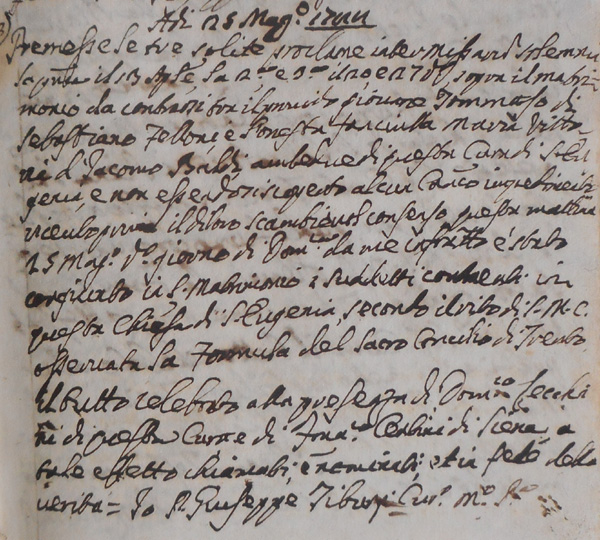 Adi 25 Mag.o
Premesse le tre solite proclame inter missar. solemnia
la prima il 13 Aple la 2.a e 3.a il 20 e 27 do, sopra il matri-
monio da contrarsi tra il giovane Tommaso di
Sebastiano Felloni, e l'onesta fanciulla Maria Vitto-
ria d. Jacomo Baldi ambedue di questa Cura di S. Eu-
genia, e non essendosi scoperto alcun Can.co impedimento
il loro scambievol consenso questa mattina
25 Mag.o do. giorno di Dom.ca da me infratto è stato
congiunto in S. Matrimonio i suddetti contraenti in
questa Chiesa di S. Eugenia, secondo il rito di S. M. C.
osservata la Formula del Sacro Concilio di Trento,
il tutto celebrato alla presenza di Dom.co Cecchi
ni di questa Cura e di Cerlini di Siena, a
tale effetto chiamati, e nominati, et in fede della
verità = Io P. Giuseppe Tiburzi Cur.o M.o P.o